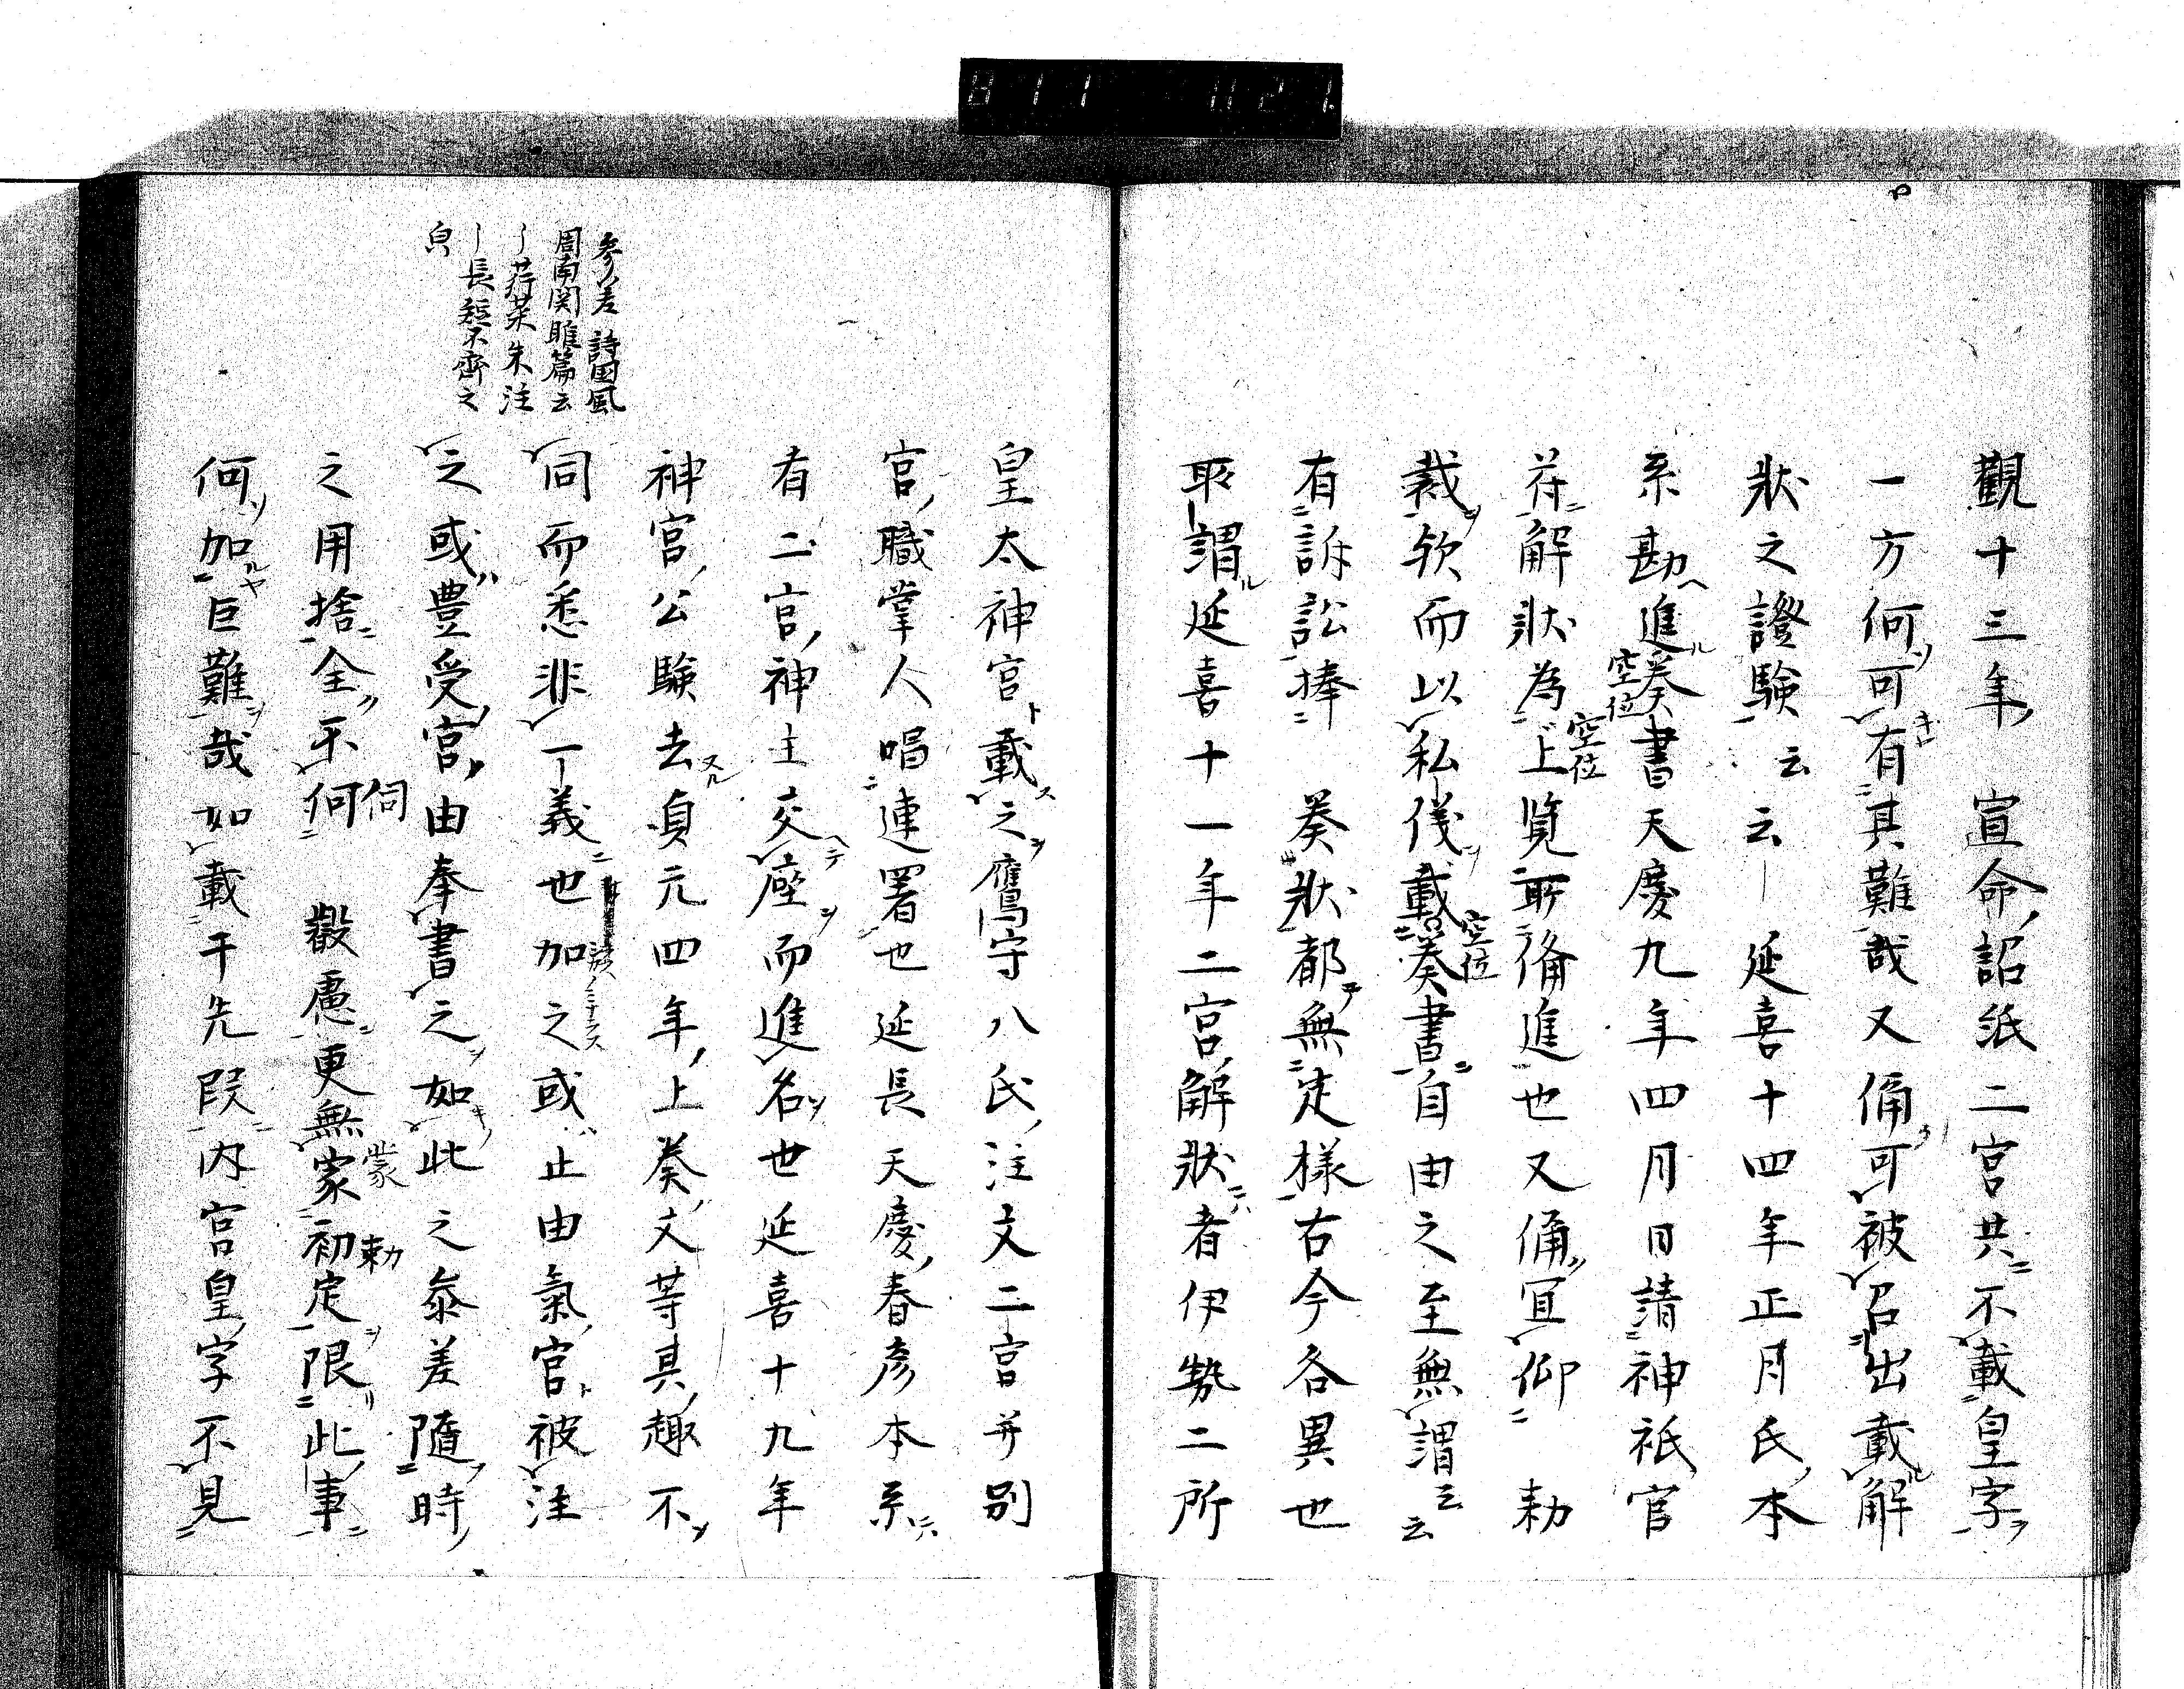 觀十三年宣命詔紙二宮共不載皇字
一方何可有其難哉又俑可被召出載解
狀之證驗云云延喜十四年正月氏本
系勘進奏書天慶九年四月日請神祇官
苻解狀為上覧所俻進也又俑冝仰勅
裁欤而以私儀載奏書自由之至無謂云云
有訴訟捧奏狀都無定樣右今各異也
所謂延喜十一年二宮解狀者伊勢二所
皇太神宮載之鷹守八氏注文二宮并別
宮職掌人唱連署也延長天慶春彦本系
有二宮神主交座而進名世延喜十九年
神宮公驗去貞元四年上奏文等其趣不
同而悉非一義也加之或止由氣宮被注
之或豊受宮由奉書之如此之叅差隨時
之用捨全不何叡慮更無家初定限此事
何加巨難哉如載于先段内宮皇字不見
空位
空位
空位
伺
蒙
勅
参差詩国風
周南関雎篇云
〡荇菜朱注
〡長短不齊之
皃
811 1121